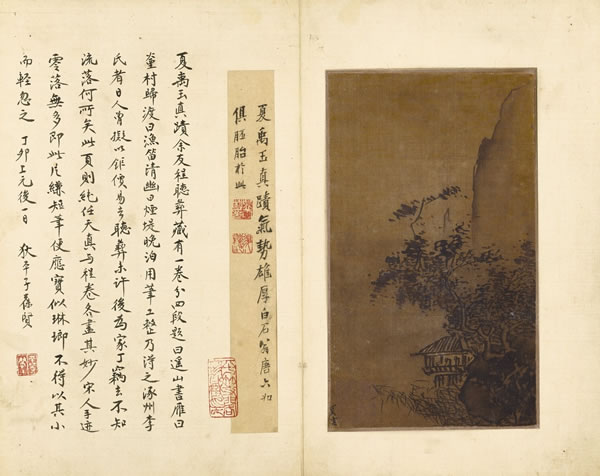 夏禹玉真蹟氣勢雄厚白石翁唐六如
俱胚胎於此
夏禹玉真蹟余友程聽彝藏有一卷分四段題曰遥山書雁曰
村歸渡曰漁笛清幽曰煙堤晚泊用筆工整乃得之涿州李
氏者日人曾擬以鉅價易去聽彝未许後為家丁竊去不知
流落何所矣此頁則純任天真与程卷各盡其妙宋人手迹
零落無多即此片縑短筆便應寶似琳瑯不得以其小
而輕忽之 丁卯上元後一日 狄平子葆賢